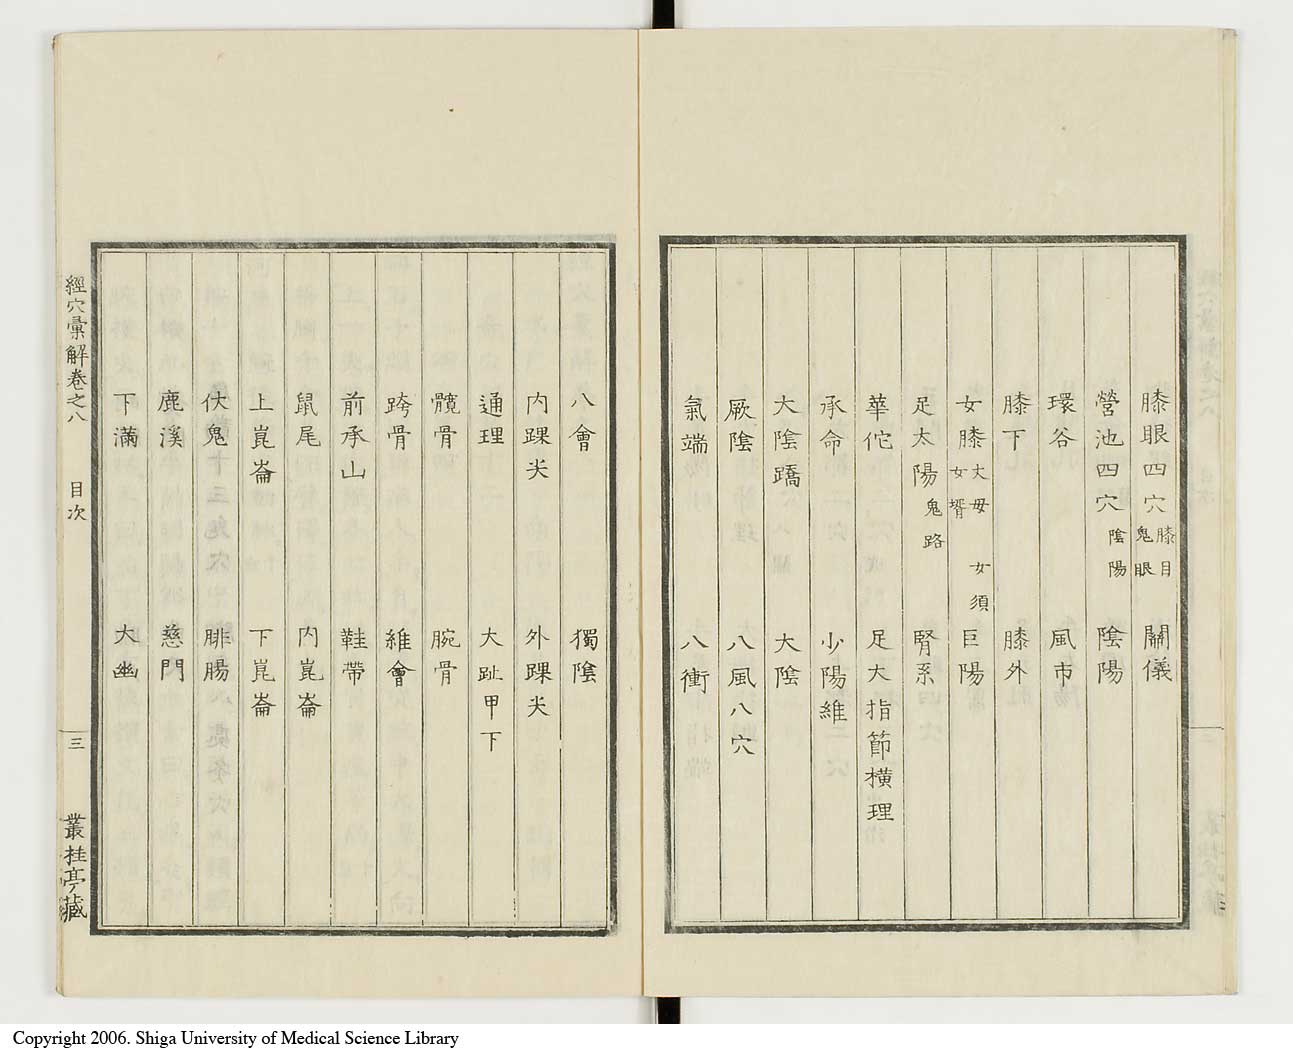 膝眼四穴 膝目 鬼眼 關儀
營池四穴 陰陽 陰陽
環谷 風市
膝下 膝外
女膝 丈母 女須 女壻 巨陽
足太陽 鬼路 腎系
華佗 足大指節橫理
承命 少陽維
大陰蹻 大陰
厥陰 八風八穴
氣端 八衝
八會 獨陰
內踝尖 外踝尖
通理 大趾甲下
髖骨 腕骨
跨骨 維會
前承山 鞋帶
鼠尾 內崑崙
上崑崙 下崑崙
伏鬼 腓腸
鹿溪 慈門
下滿 大幽
經穴彙解卷之八 目次 三 叢桂亭藏
Copyright 2006. Shiga University of Medical Science Library